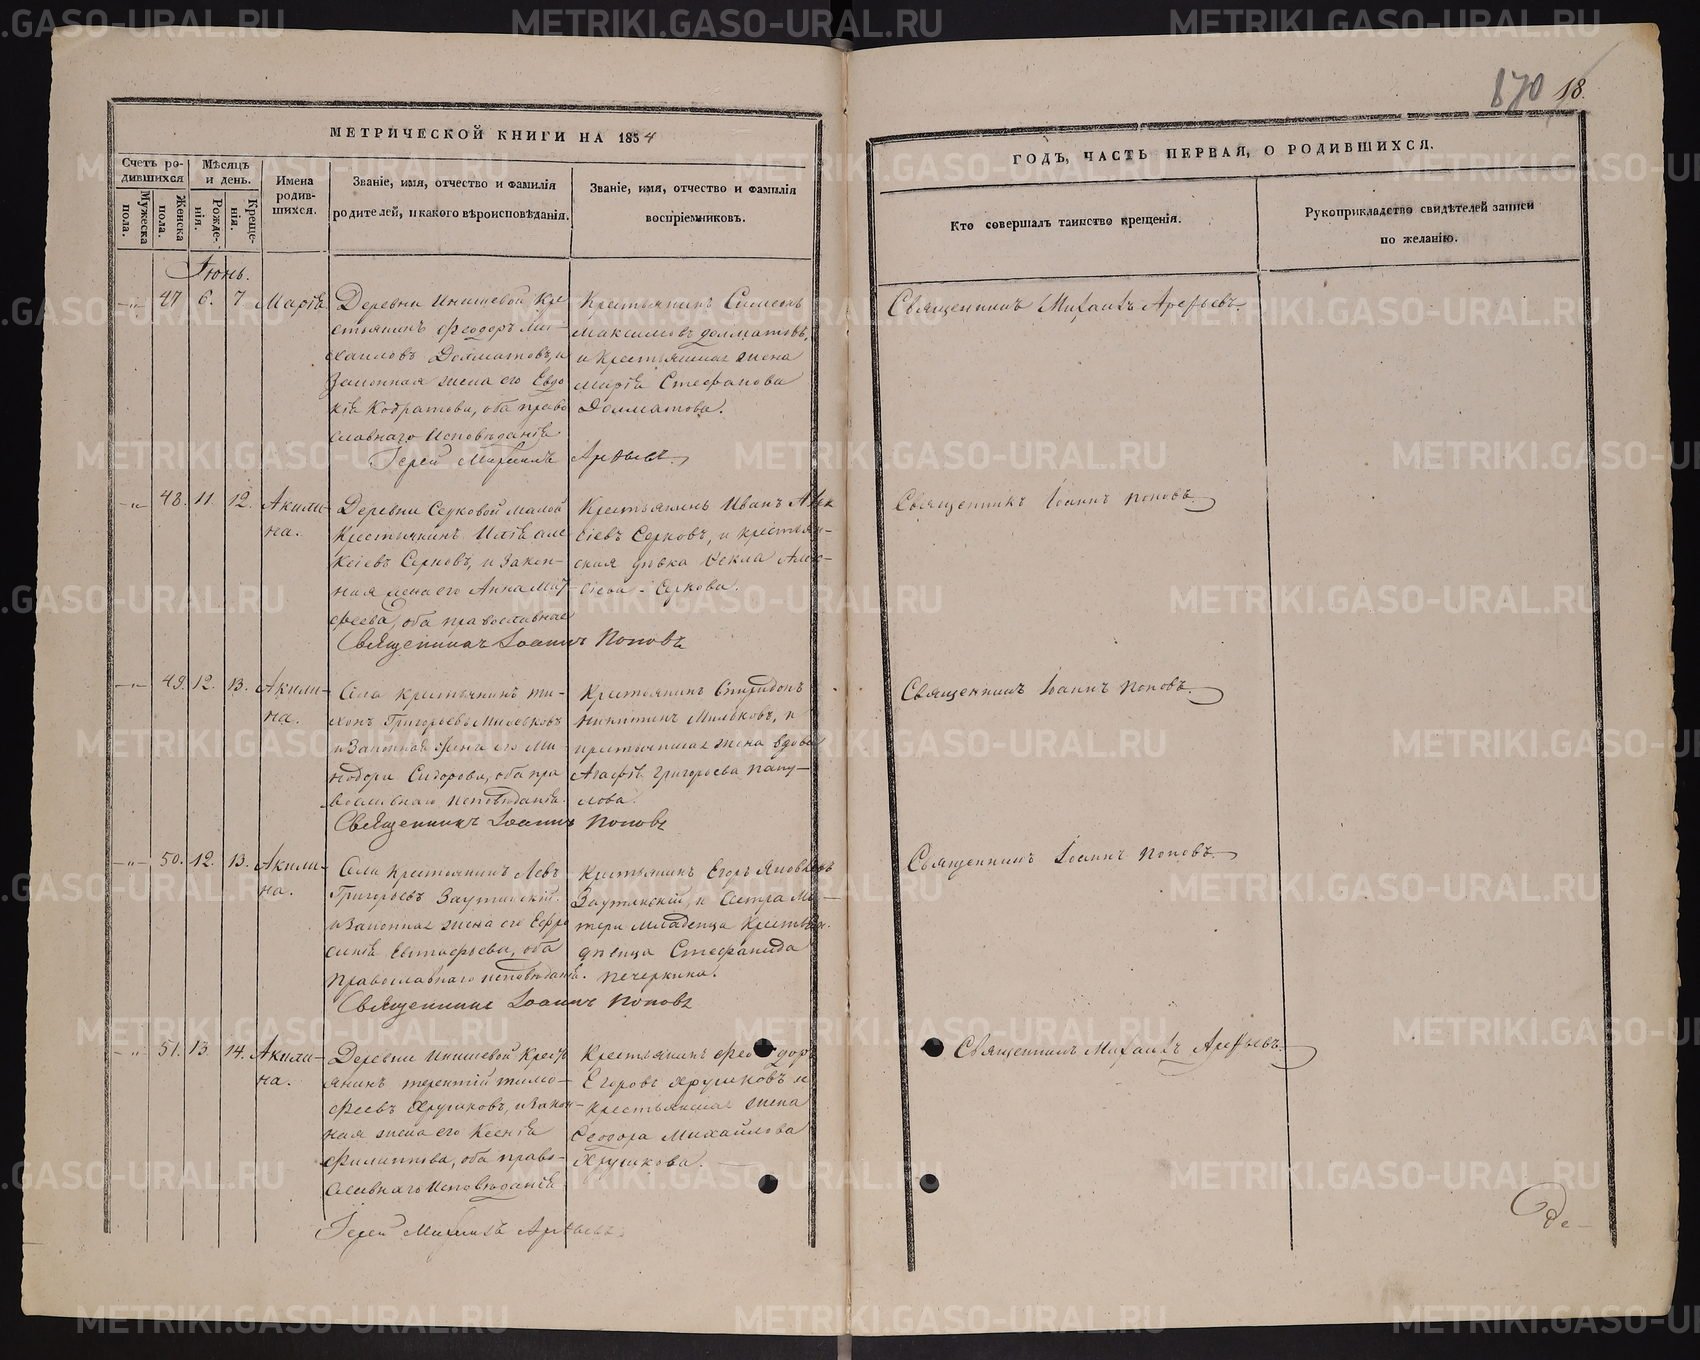 870 18.
МЕТРИЧЕСКОЙ КНИГИ НА 1854
ГОДЪ, ЧАСТЬ ПЕРВАЯ, О РОДИВШИХСЯ.
Счетъ ро-
дившихся
Мужеска
пола.
Женска
пола.
Мѣсяцъ
и день.
Рожде-
нія.
Креще-
нія.
Имена
родив-
шихся.
Званіе, имя, отчество и фамилія
родителей, и какого вѣроисповѣданія.
Званіе, имя, отчество и фамилія
воспріемниковъ.
Кто совершалъ таинство крещенія.
Рукоприкладство свидѣтелей записи
по желанію.
Іюнь.
47 6. 7. Марія
Деревни Инишевой Кре
стьянинъ Феодоръ Ми-
хаиловъ Долматовъ, и
Законная жена его Евдо
кія Кодратова, оба право
славнаго Исповѣданія
Крестьянинъ Симеонъ
Максимовъ Долматовъ,
и Крестьянская жена
Марія Стефанова
Долматова.
Іерей Михаилъ Арефьевъ
Священникъ Михаилъ Арефьевъ.
48. 11. 12. Акили-
на.
Деревни Серковой малой
Крестьянинъ Илія Але
ксіевъ Серковъ, и Закон-
ная жена его Анна Мат
феева, оба православные
Крестьянинъ Иванъ Алек
сіевъ Серковъ, и крестьян-
ская дѣвка Ѳекла Алек-
сіева Серкова.
Священникъ Іоаннъ Поповъ
Священникъ Іоаннъ Поповъ.
49. 12. 13. Акили-
на.
Села крестьянинъ Ти-
хонъ Григорьевъ Мильковъ
и Законная жена его Ми-
нодора Сидорова, оба пра
вославнаго исповѣданія.
Крестьянинъ Спиридонъ
Никитинъ Мильковъ, и
крестьянская жена вдова
Агафія Григорьева Папу-
лова.
Священникъ Іоаннъ Поповъ
Священникъ Іоаннъ Поповъ.
50. 12. 13. Акили-
на.
Села Крестьянинъ Левъ
Григорьевъ Заутинскій
и Законная жена его Евфро
синія Евстафьева, оба
православнаго исповѣданія.
Крестьянинъ Егоръ Яковлевъ
Заутинскій, и Сестра Ма-
тери младенца Крестьян.
дѣвица Стефанида
Печеркина.
Священникъ Іоаннъ Поповъ
Священникъ Іоаннъ Поповъ.
51. 13. 14. Акили-
на.
Деревни Инишевой Крест
янинъ Терентій Тимо-
феевъ Ярушковъ, и Закон-
ная жена его Ксенія
Филиппова, оба право-
славнаго Исповѣданія
Крестьянинъ Феодоръ
Егоровъ Ярушковъ и
Крестьянская жена
Ѳеодора Михайлова
Ярушкова.
Іерей Михаилъ Арефьевъ.
Священникъ Михаилъ Арефьевъ.
METRIKI.GASO-URAL.RU